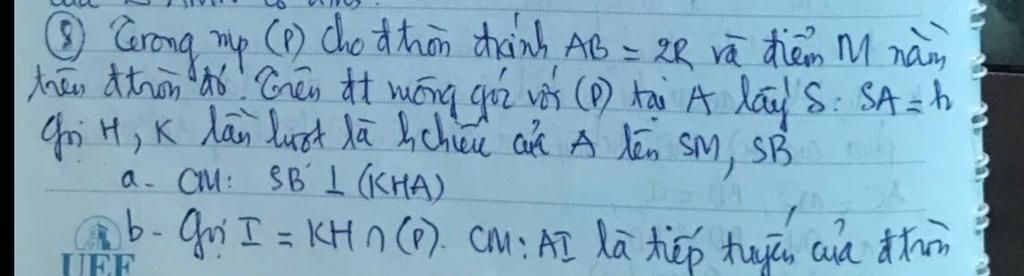 ⑧ Trong mp (P) cho đtròn đkính AB = 2R và điểm M nằm
trên đtròn đó. Trên đt vuông góc với (P) tại A lấy S: SA = h
Gọi H, K lần lượt là hchiếu của A lên SM, SB
a- CM: SB ⊥ (KHA)
b- Gọi I = KH ∩ (P). CM: AI là tiếp tuyến của đtròn
UEF